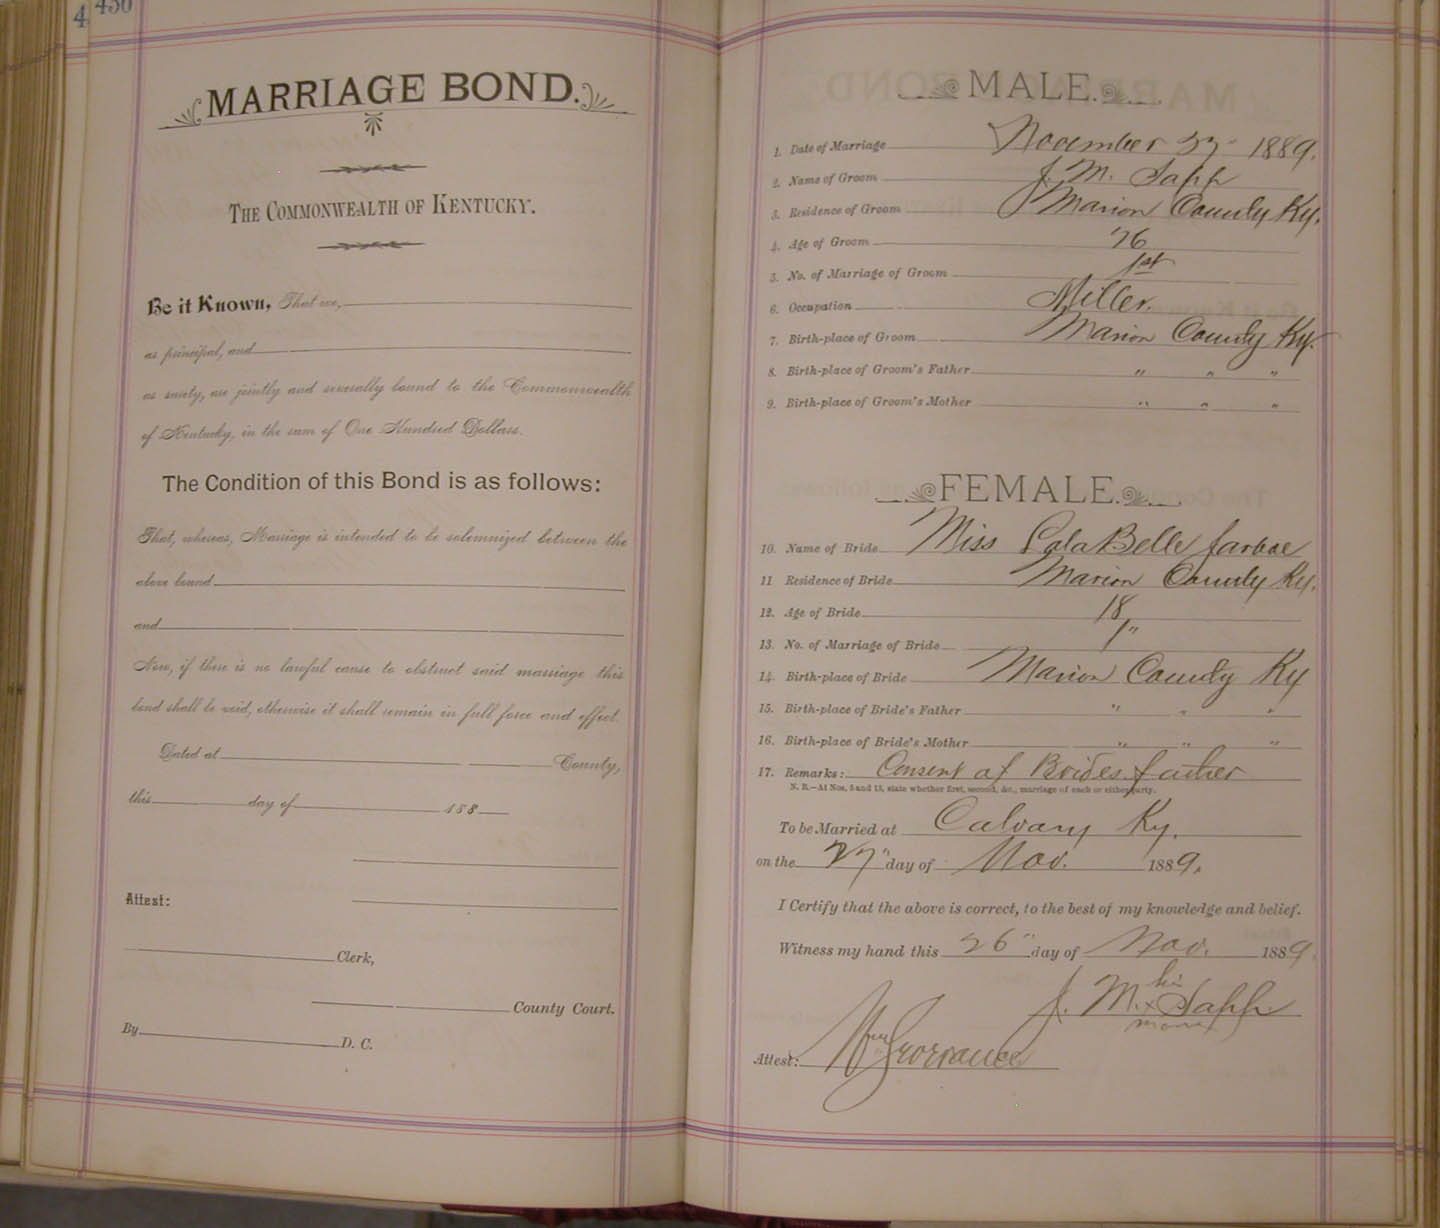 4 450
MARRIAGE BOND.
THE COMMONWEALTH OF KENTUCKY.
Be it Known, That we,
as principal, and
as surety, are jointly and severally bound to the Commonwealth
of Kentucky, in the sum of One Hundred Dollars.
The Condition of this Bond is as follows:
That, whereas, Marriage is intended to be solemnized between the
above bound
and
Now, if there is no lawful cause to obstruct said marriage this
bond shall be void, otherwise it shall remain in full force and effect.
Dated at County,
this day of 188
Attest:
Clerk,
County Court.
By D. C.
MALE.
1. Date of Marriage November 27" 1889.
2. Name of Groom J. M. Sapp
3. Residence of Groom Marion County Ky.
4. Age of Groom 26
5. No. of Marriage of Groom 1st
6. Occupation Miller.
7. Birth-place of Groom Marion County Ky.
8. Birth-place of Groom's Father " " "
9. Birth-place of Groom's Mother " " "
FEMALE.
10. Name of Bride Miss Lola Belle Jarboe
11 Residence of Bride Marion County Ky.
12. Age of Bride 18
13. No. of Marriage of Bride 1"
14. Birth-place of Bride Marion County Ky
15. Birth-place of Bride's Father " " "
16. Birth-place of Bride's Mother " " "
17. Remarks: Consent of Brides father
N. B.—At Nos. 5 and 13, state whether first, second, &c., marriage of each or either party.
To be Married at Calvary Ky.
on the 27" day of Nov. 1889.
I Certify that the above is correct, to the best of my knowledge and belief.
Witness my hand this 26" day of Nov. 1889.
his
J. M. x Sapp
mark
Attest: